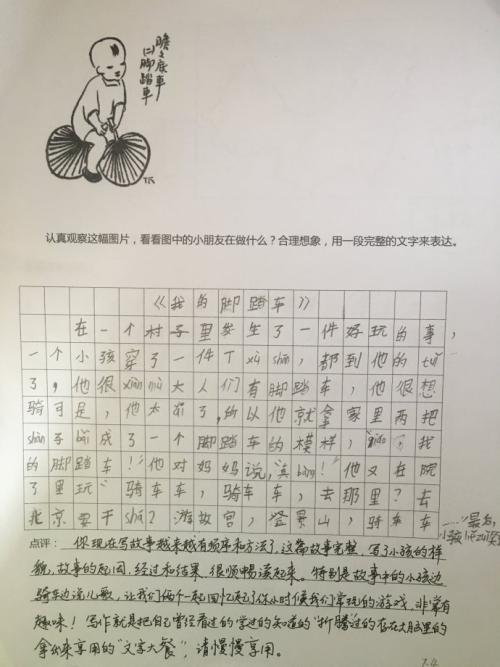 瞻瞻底車
(二)脚踏車
TK
认真观察这幅图片，看看图中的小朋友在做什么？合理想象，用一段完整的文字来表达。
《我的脚踏车》
在一个村子里发生了一件好玩的事，
一个小孩穿了一件T xù shān，都到他的tuǐ
了，他很xiàn mù大人们有脚踏车，他很想
骑可是，他太 了，的以他就拿家里两把
shàn子 成了一个脚踏车的模样，" 我
的脚踏车！"他对妈妈说，"真bàng！"他又在院
了里玩"骑车车，骑车车，去那里？去
北京要干shá？游故宫，登景山，骑车车
……"最后，
小孩
点评：你现在写故事越来越有顺序和方法了，这篇故事完整，写了小孩的样
貌，故事的起因，经过和结果，很顺畅读起来。特别是故事中的小孩边
骑车边说儿歌，让我们俩个一起回忆起了你小时候我们常玩的游戏，非常有
趣味！写作就是把自己曾经看过的尝过的知道的"折腾"过的存在大脑里的
拿出来享用的"文字大餐"，请慢慢享用。
7.4